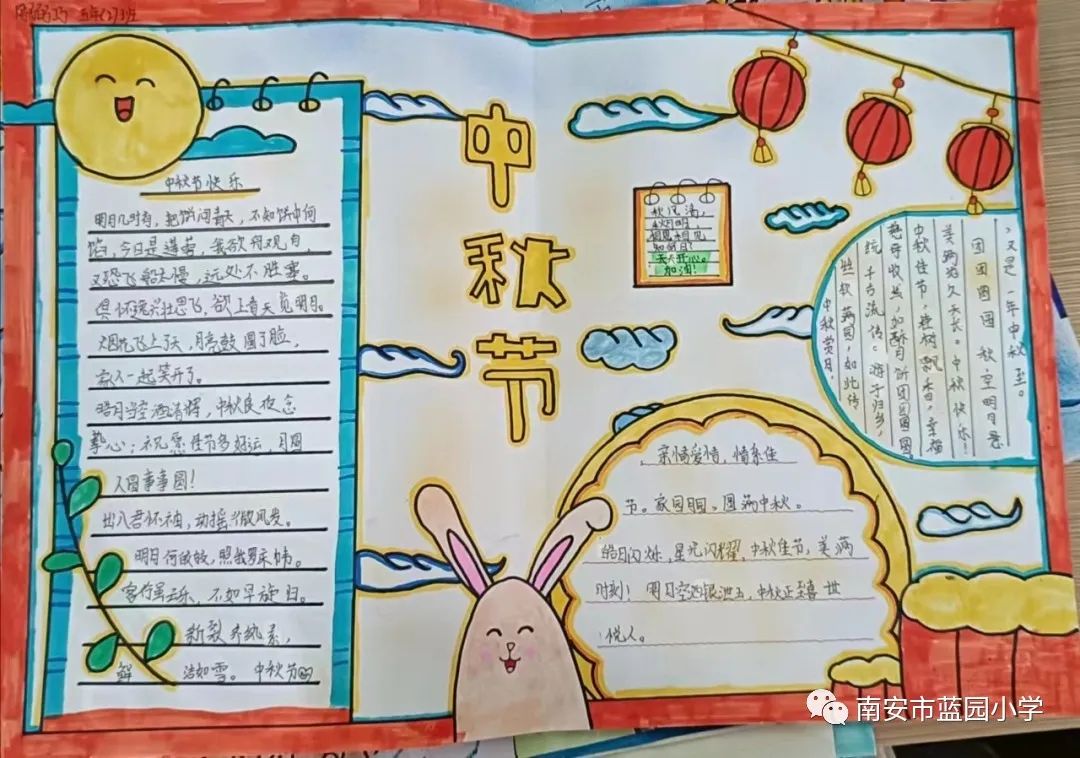 五年(2)班
中秋节
中秋节快乐
明月几时有，把饼问青天，不知饼中何
馅，今日是莲蓉，我欲舟观月，
又恐飞船太慢，远处不胜寒。
俱怀逸兴壮思飞，欲上青天览明月。
烟花飞上了天，月亮鼓圆了脸，
家人一起笑开了。
皓月当空洒清辉，中秋良夜念
挚心；祝愿佳节多好运，月圆
人圆事事圆！
出入君怀袖，动摇微风发。
明月何皎皎，照我罗床帏。
客行虽云乐，不如早旋归。
新裂齐纨素，
鲜 洁如雪。中秋节
秋风清，
秋月明，
相思相见
知何日？
天天开心。
加油！
又是一年中秋至。
团团圆圆 秋空明月悬
美满治久天长。中秋快乐！
中秋佳节，桂树飘香，幸福
统千古流传。游子归乡，
丝软 满园，如此传
中秋赏月，
亲情爱情，情系佳
节。家圆月圆。圆满中秋。
皓月闪烁，星光闪耀，中秋佳节，美满
时刻！
悦人。
南安市蓝园小学